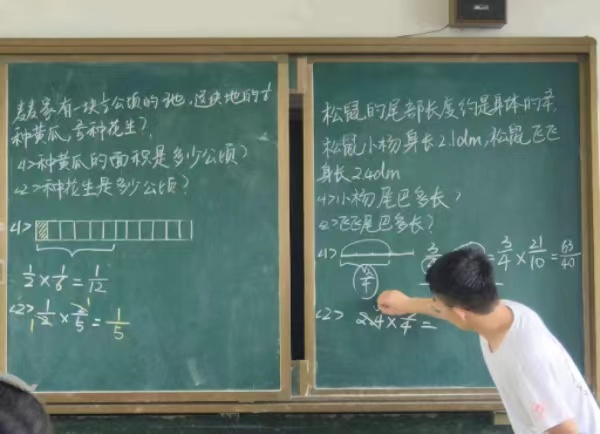 麦麦家有一块½公顷的地,这块地的1/6
种黄瓜,2/5种花生?
<1>种黄瓜的面积是多少公顷?
<2>种花生是多少公顷?
<1>
1/2×1/6=1/12
<2> 1/2×2/5=1/5
1 1
松鼠的尾部长度约是身体的3/4.
松鼠小杨身长2.1dm,松鼠飞飞
身长2.4dm
<1>小杨尾巴多长?
<2>飞飞尾巴多长?
<1> =3/4×21/10=63/40
3/4
<2> 2.4×3/4=